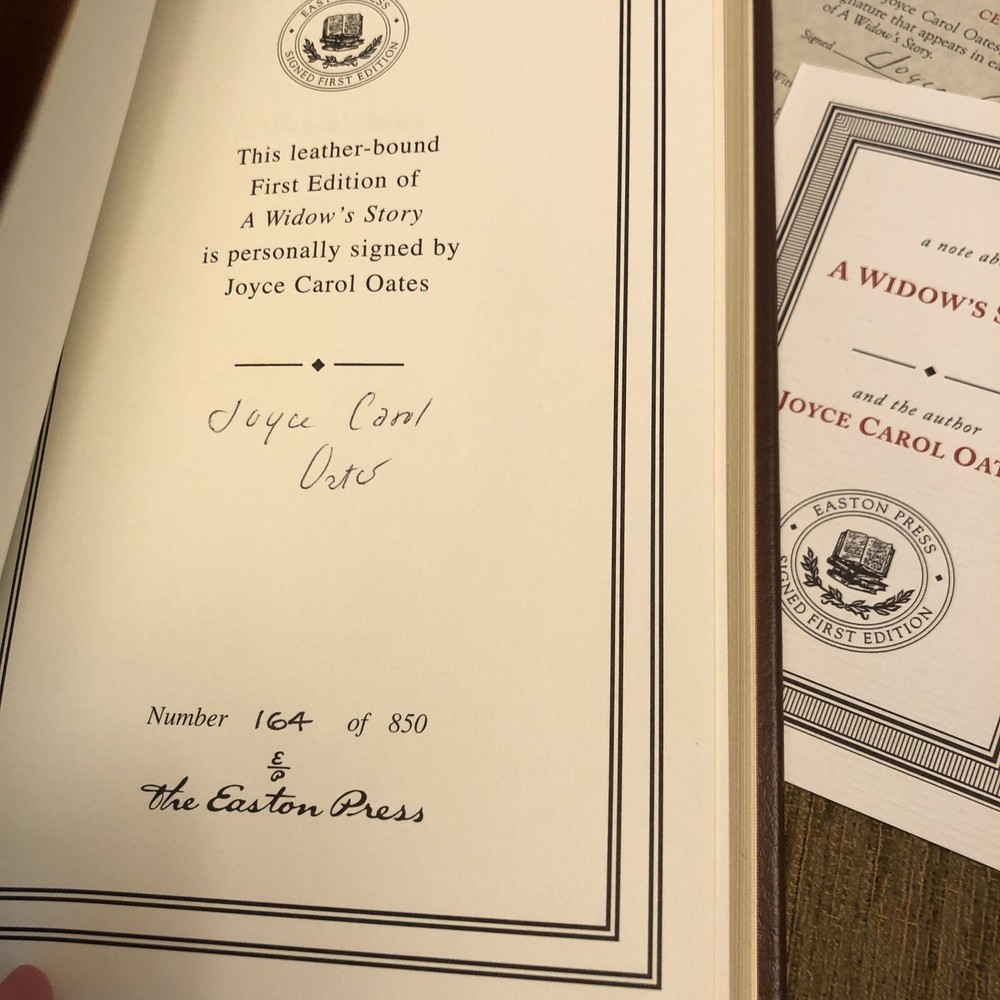 EASTON PRESS
SIGNED FIRST EDITION
This leather-bound
First Edition of
A Widow's Story
is personally signed by
Joyce Carol Oates
Joyce Carol
Oates
Number 164 of 850
E
P
The Easton Press
Joyce Carol Oates,
that appears in
of A Widow's Story.
Signed Joyce
a note
A WIDOW'S
and the author
JOYCE CAROL
EASTON PRESS
SIGNED FIRST EDITION